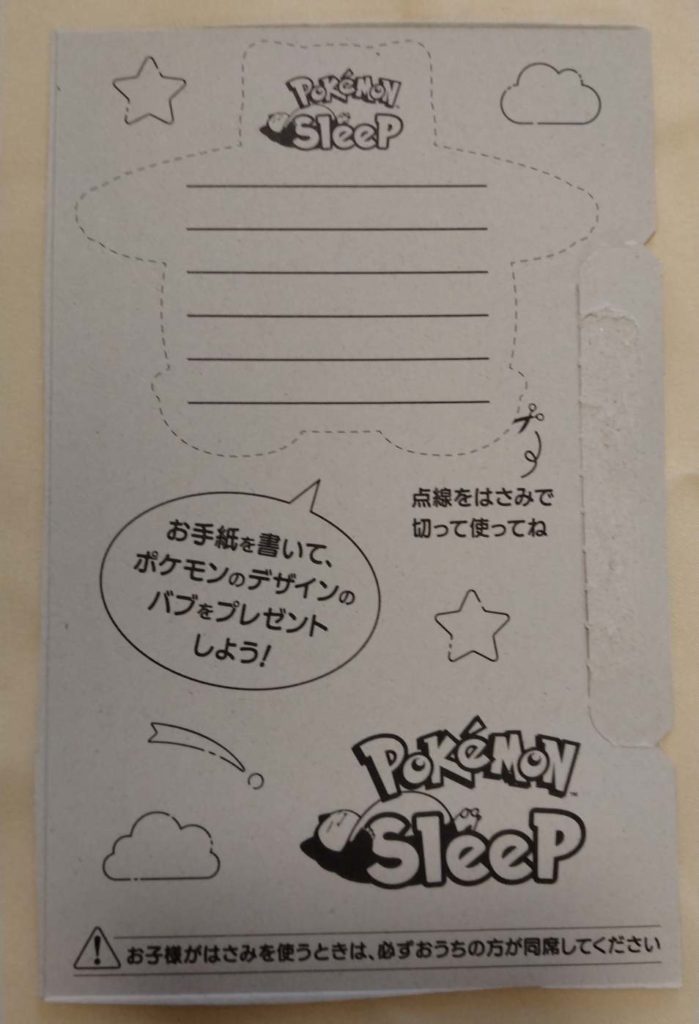 POKéMON
SleeP
点線をはさみで
切って使ってね
お手紙を書いて、
ポケモンのデザインの
バブをプレゼント
しよう!
POKéMON™
SleeP
お子様がはさみを使うときは、必ずおうちの方が同席してください